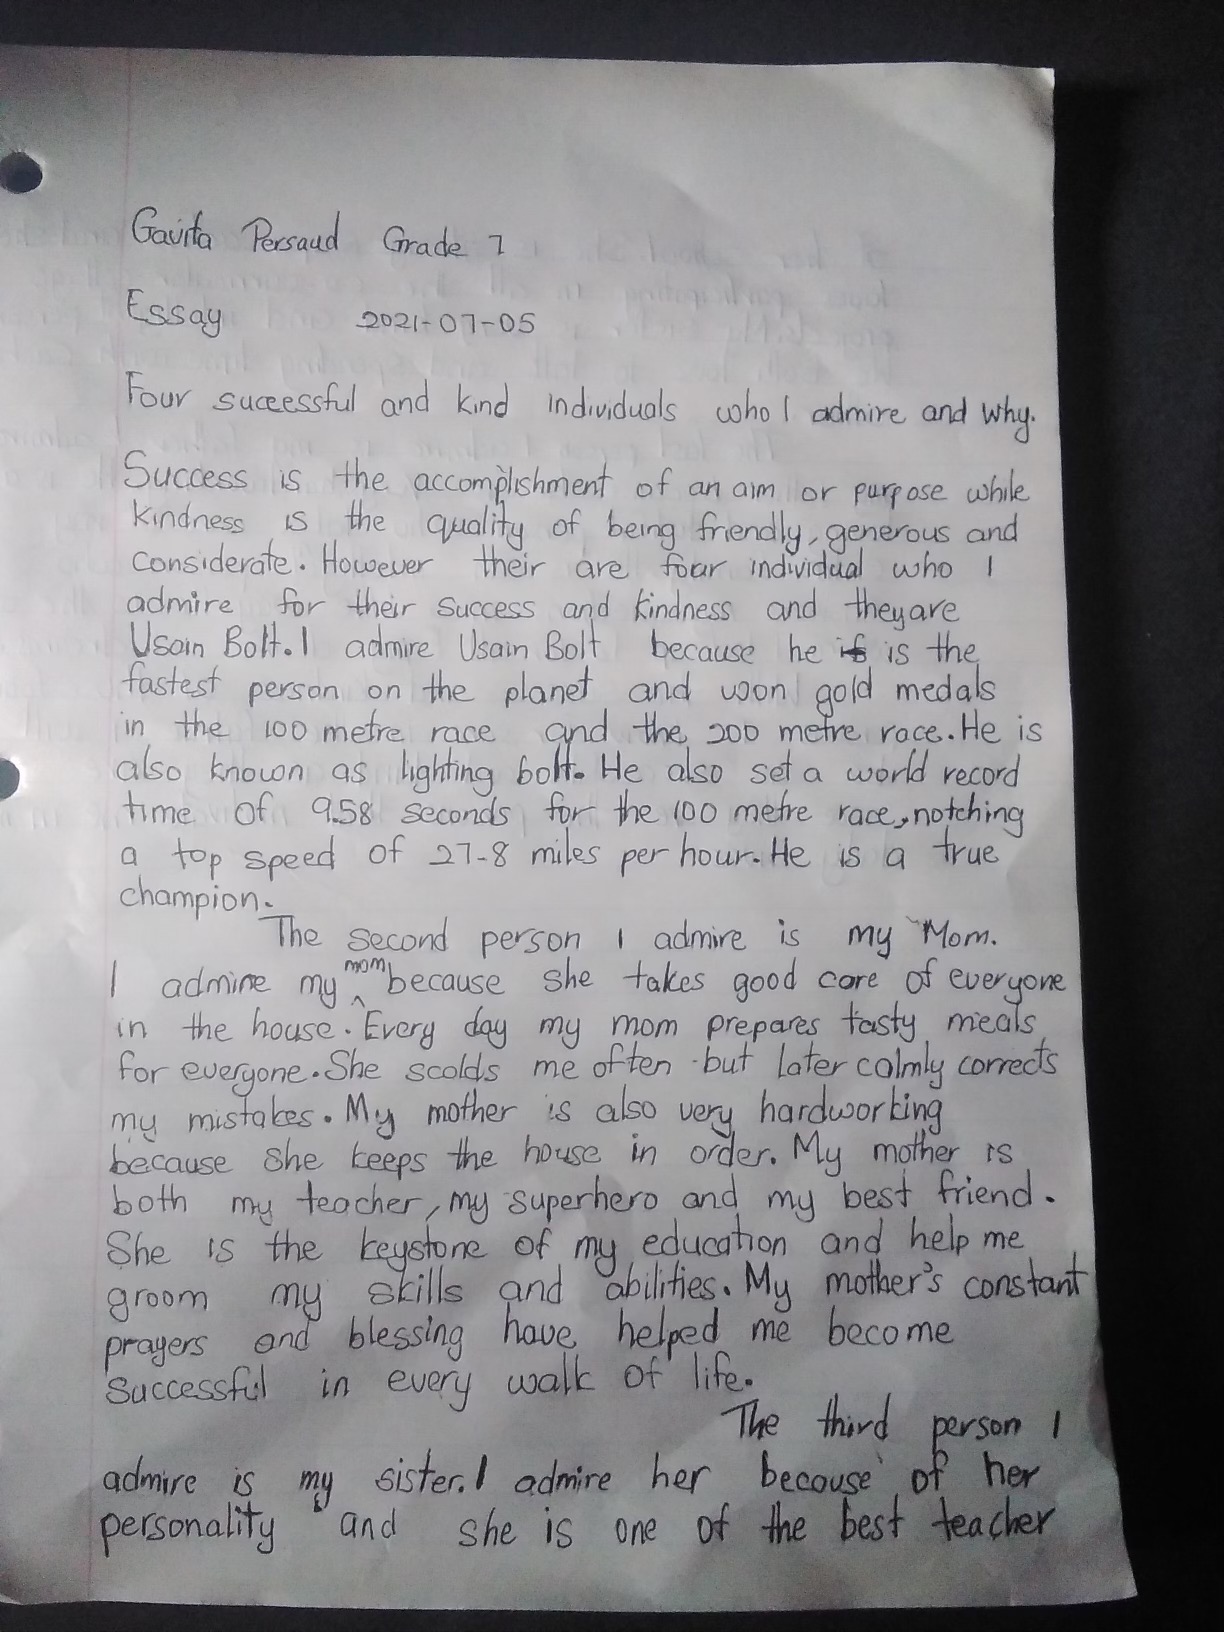 Gavita Persaud Grade 7
Essay 2021-07-05
Four successful and kind individuals who I admire and why.
Success is the accomplishment of an aim or purpose while
kindness is the quality of being friendly, generous and
considerate. However their are four individual who I
admire for their success and kindness and they are
Usain Bolt. I admire Usain Bolt because he is is the
fastest person on the planet and won gold medals
in the 100 metre race and the 200 metre race. He is
also known as lighting bolt. He also set a world record
time of 9.58 seconds for the 100 metre race, notching
a top speed of 27-8 miles per hour. He is a true
champion.
The second person I admire is my Mom.
I admire my mom because she takes good care of everyone
in the house. Every day my mom prepares tasty meals
for everyone. She scolds me often but later calmly corrects
my mistakes. My mother is also very hardworking
because she keeps the house in order. My mother is
both my teacher, my superhero and my best friend.
She is the keystone of my education and help me
groom my skills and abilities. My mother's constant
prayers and blessing have helped me become
successful in every walk of life.
The third person I
admire is my sister. I admire her because of her
personality and she is one of the best teacher